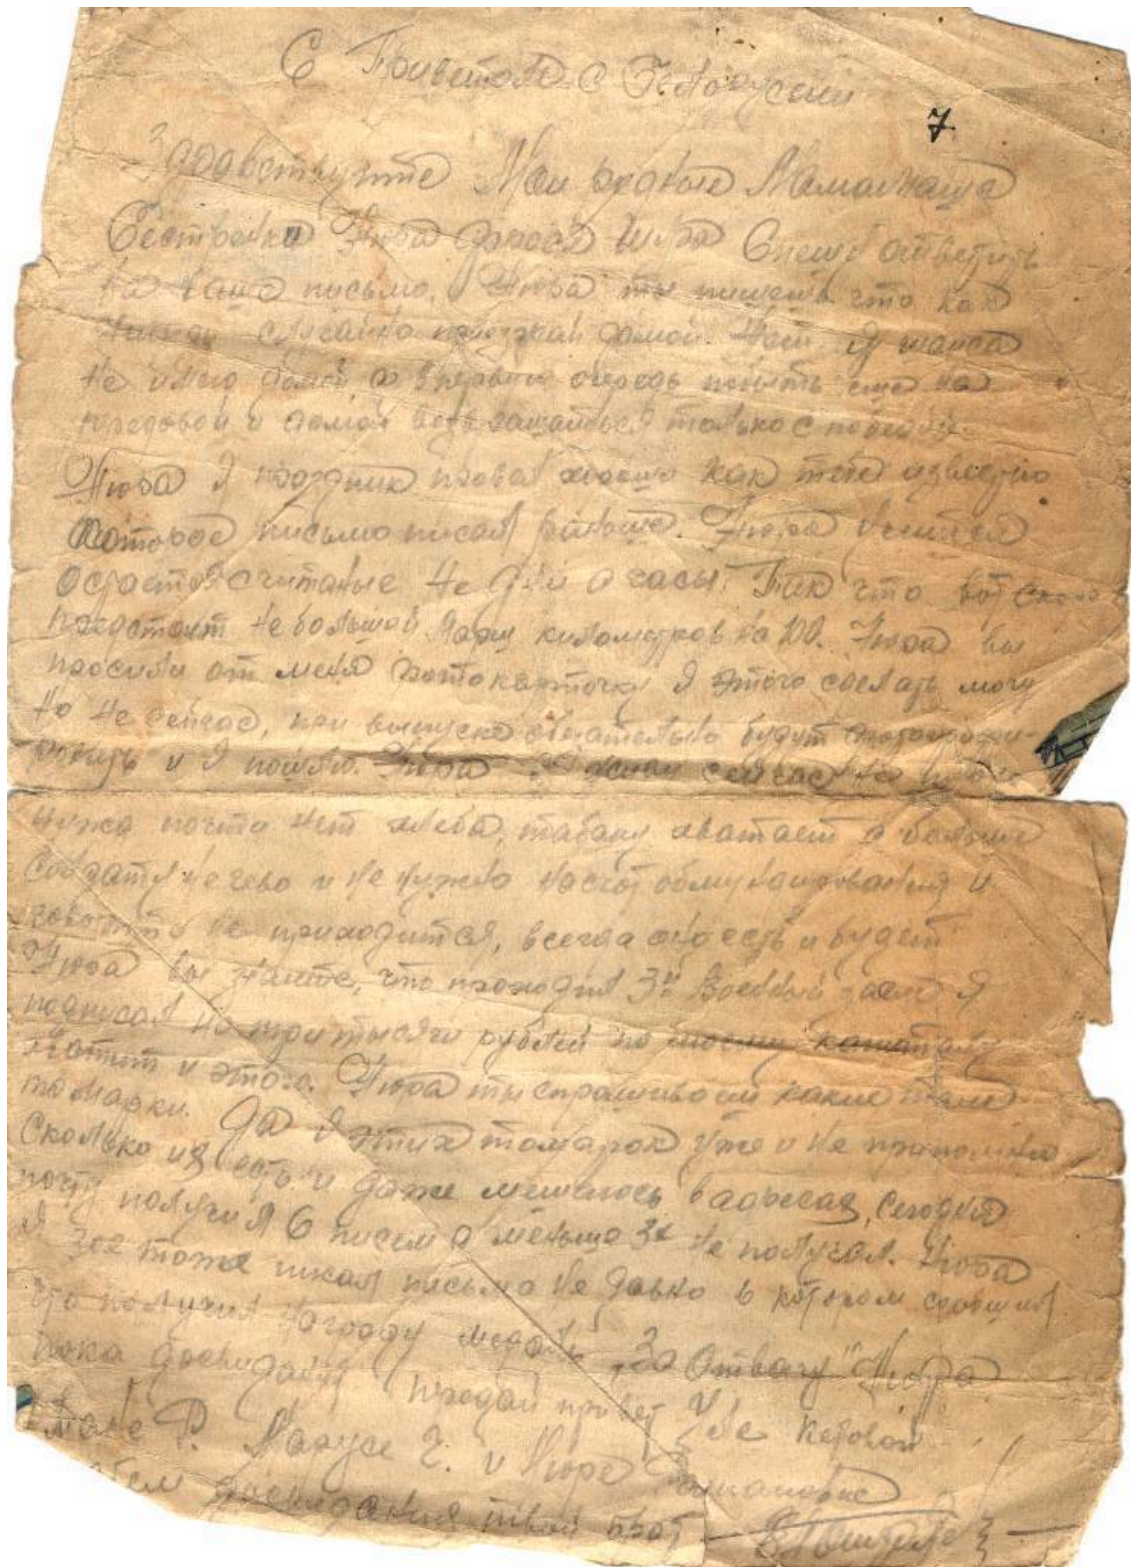 С Приветом с Белоруссии
7
Здравствуйте Мои родные Мамаша
Сестренка Нюра Шура Спешу ответить
на ваше письмо. Нюра ты пишешь что как
приезжай домой. Нет я шанса
не имею домой, а в первую очередь попасть еще на
передовой и домой возвращаться только с победой.
Нюра я праздник провел хорошо как тебе известно
которое письмо писал раньше. Нюра учиться
остается считаные не дни а часы. Так что вот скоро
предстоит не большой марш километров на 100. Нюра вы
просили от меня фотокарточку я этого сделать могу
но не сейчас, при выпуске обязательно будут фотографи-
ровать и я пошлю. Нюра я сейчас
нужа почти нет хлеба, табаку хватает а больше
солдату нечево и не нужно насчот обмундирования и
не приходится, всегда оно есть и будет
Нюра вы знаите, что проходил 3й Военный заем я
подписал на три тысячи рублей по моему
хватит и этого. Нюра ты спрашиваеш какие там
томарки. Да я этих томарок уже и не припомню
Сколько их есть и даже мешаюсь в адресах, сегодня
почту получил 6 писем а меньше 3х не получал. Нюра
я Зое тоже писал письмо не давно в котором сообщил
что получил награду медаль „За Отвагу" Нюра
пока досвидания передай привет
Р. Марусе Г. и Нюре
досвидания твой брат